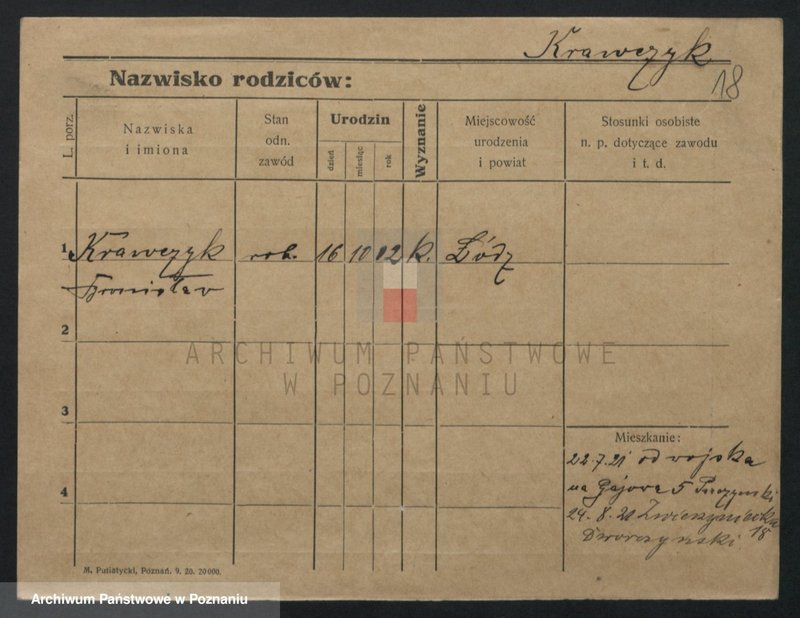 Krawczyk
18
Nazwisko rodziców:
L. porz.
Nazwiska
i imiona
Stan
odn.
zawód
Urodzin
dzień
miesiąc
rok
Wyznanie
Miejscowość
urodzenia
i powiat
Stosunki osobiste
n. p. dotyczące zawodu
i t. d.
1 Krawczyk rob. 16 10 02 k. Łódź
Bronisław
2
ARCHIWUM PAŃSTWOWE
W POZNANIU
3
Mieszkanie:
22.7.21 od wojska
4 na Gajowa 5
24.8.21 Zwierzyniecka
Dworczyński 18
M. Putiatycki, Poznań. 9. 20. 20000.
Archiwum Państwowe w Poznaniu